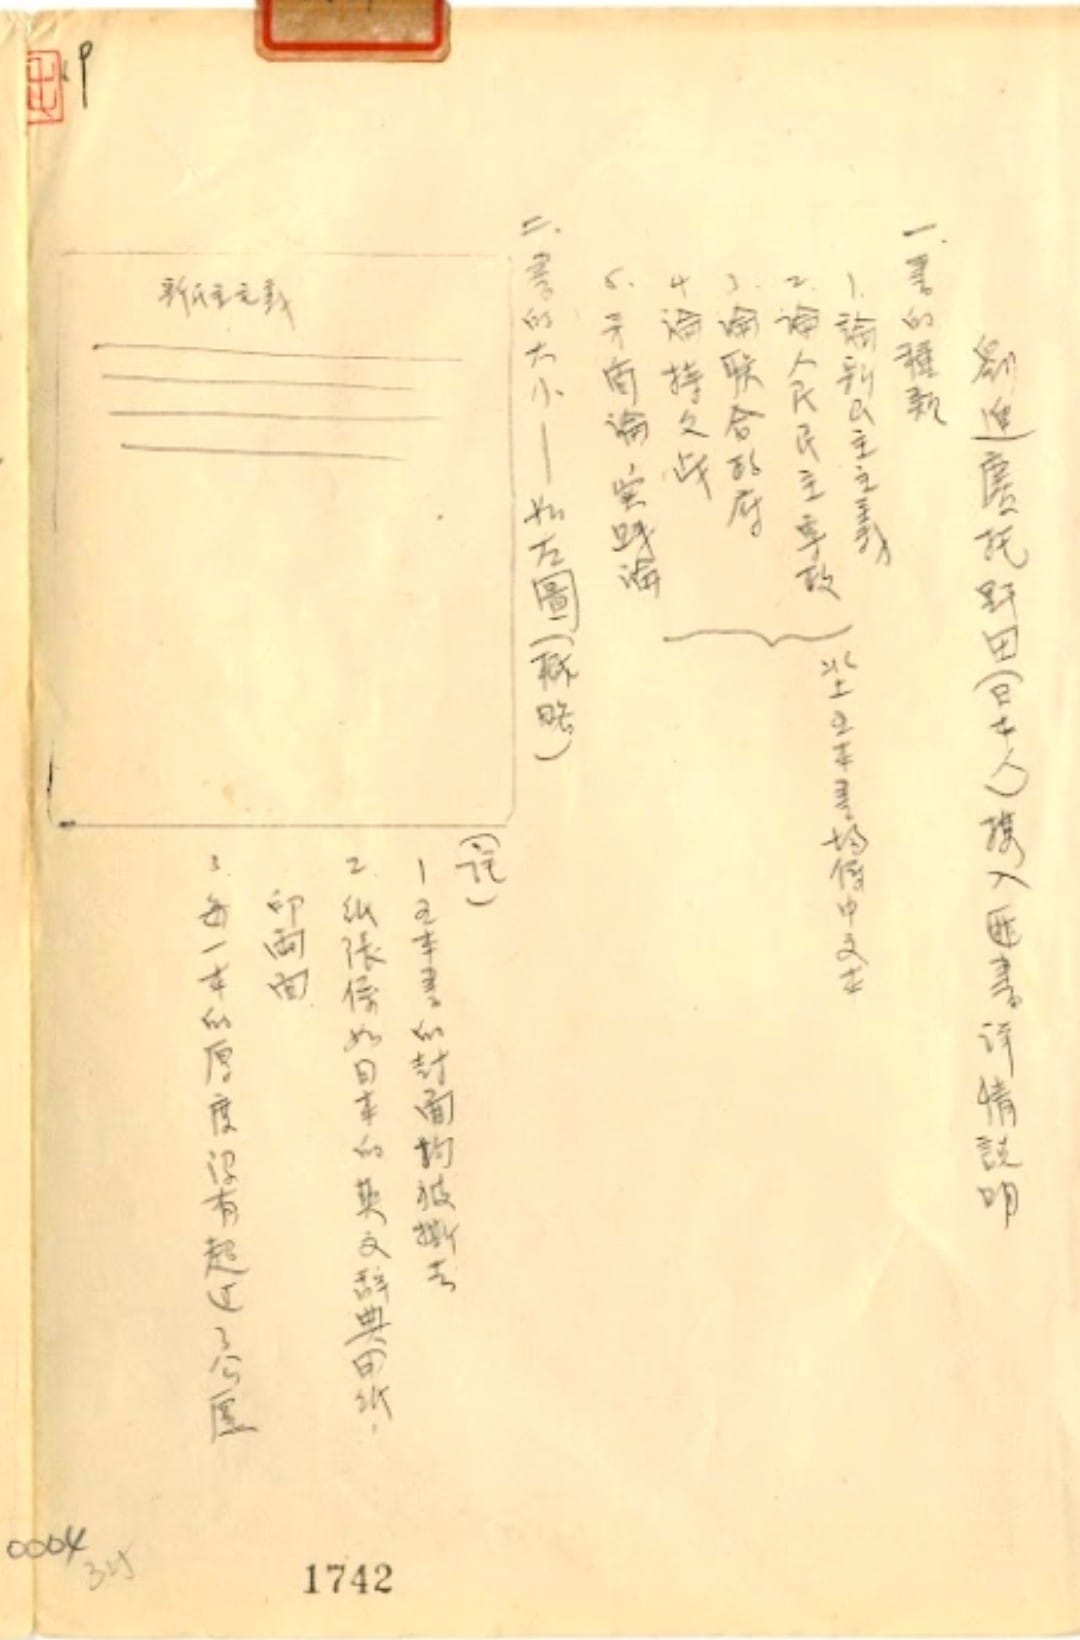 劉進慶託野田(日本人)携入匪書詳情説明
一.書的種類
1.論新民主主義
2.論人民民主專政
3.論联合政府
4.論持久战
5.矛盾論,实践論
以上五本書均係中文本
二.書的大小—如左圖(概略)
新民主主義
(註)
1五本書的封面均被撕去
2.紙張係如日本的英文辞典用紙,
印兩面
3.每一本的厚度没有超过3公厘
0004
1742